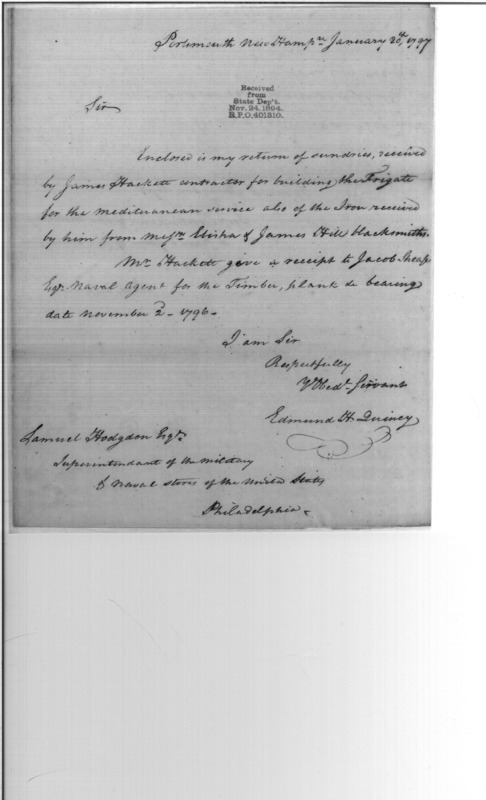 Portsmouth New Hampre January 20th, 1797
Received
from
State Dep't.
Nov. 24, 1894.
R.P.O. 401310.
Sir
Enclosed is my return of sundries, received
by James Hackett contractor for building the Frigate
for the mediteranean service also of the Iron received
by him from Messrs Elisha & James Hill blacksmiths.
Mr Hackett gave a receipt to Jacob Sheafe
Esqr. Naval Agent for the Timber, plank &c bearing
date november 2d - 1796 -
I am Sir
Respectfully
Y Obedt. Servant
Edmund H Quincy
Samuel Hodgdon Esqr.
Superintendant of the military
& naval stores of the United States
Philadelphia -